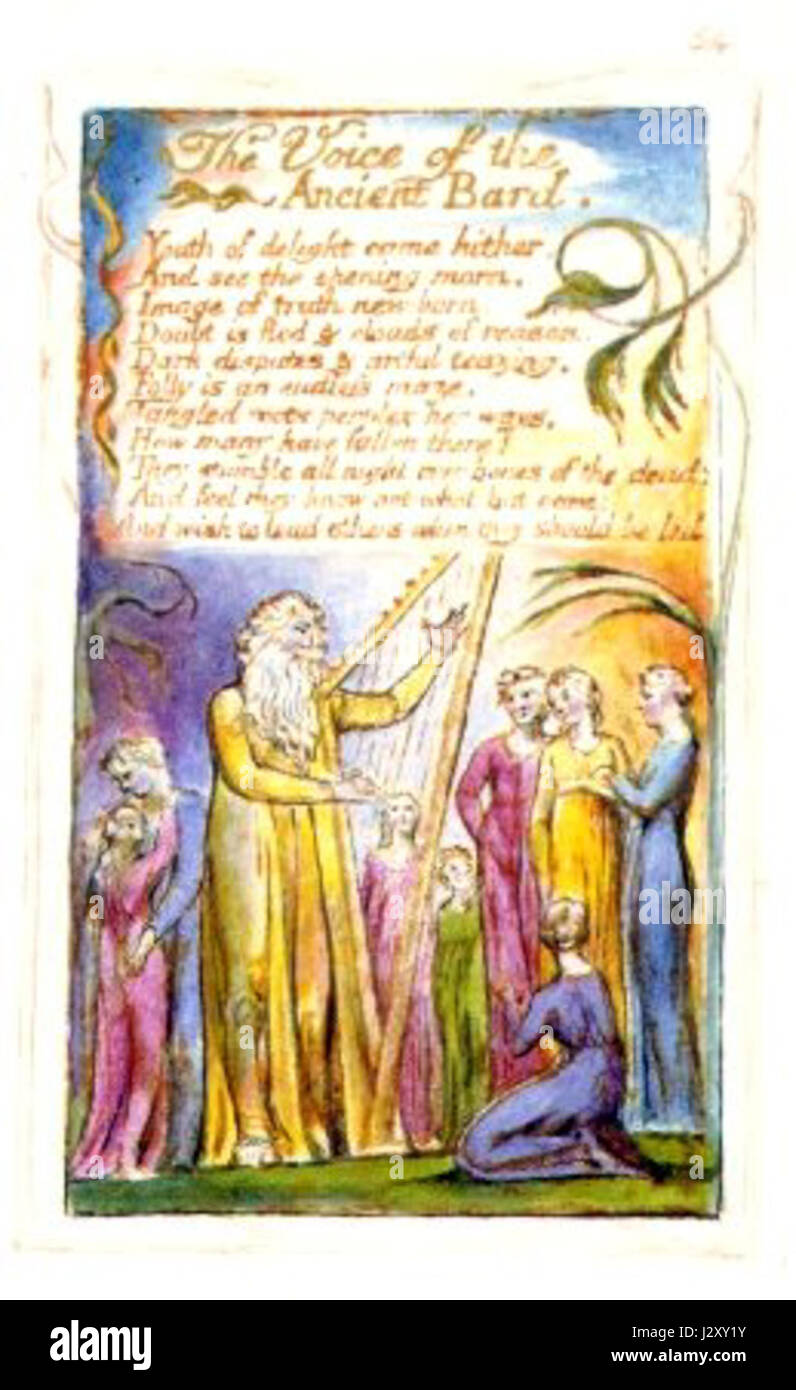 54
The Voice of the
Ancient Bard.
Youth of delight come hither
And see the opening morn,
Image of truth new born
Doubt is fled & clouds of reason.
Dark disputes & artful teazing.
Folly is an endless maze.
Tangled roots perplex her ways,
How many have fallen there!
They stumble all night over bones of the dead;
And feel they know not what but care;
And wish to lead others when they should be led
a
alamy
alamy
Image ID: J2XY1Y
www.alamy.com